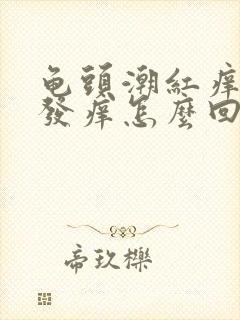 龟頭潮紅痒
發痒怎麼回
帝玖櫟